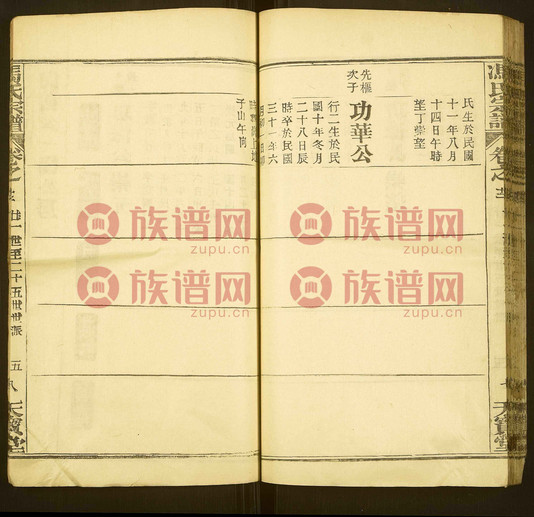 馮氏宗譜
卷之
氏生於民國
十一年八月
十四日午時
望丁崇望
功華公
先樞
次子
行二生於民
國十年冬月
二十八日辰
時卒於民國
三十一年六
子山午向
馮氏宗譜
卷之
廿一世至二十五世世派
五
八
天寶堂
天寶堂
族谱网
zupu.cn
族谱网
zupu.cn
族谱网
zupu.cn
族谱网
zupu.cn